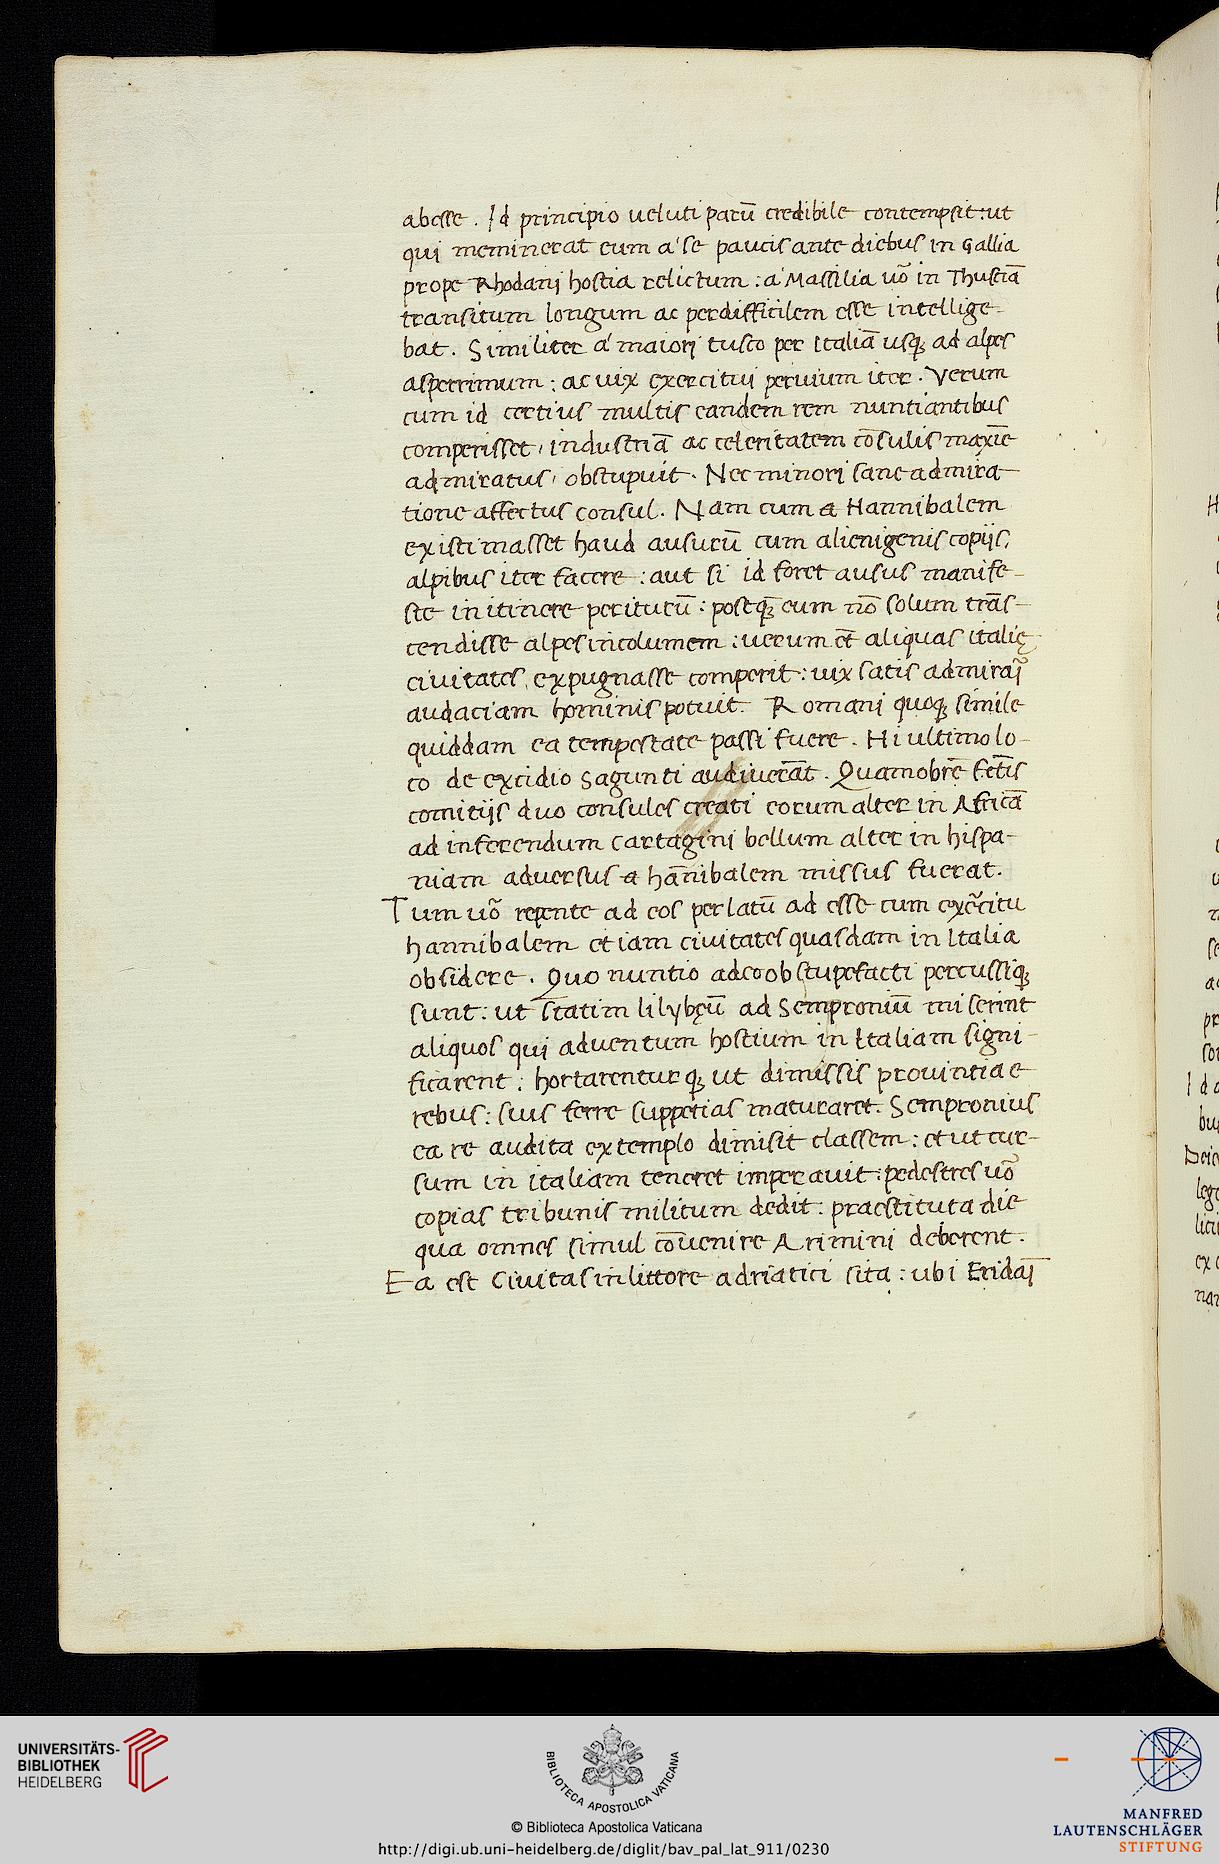 abesse . Id principio ueluti parū credibile contempsit : ut
qui meminerat eum a' se paucis ante diebus in Gallia
prope Rhodanj hostia relictum : a' Massilia uō in Thusciā
transitum longum ac perdifficilem esse intellige-
bat . Similiter a' maiori tusco per Italiā usq; ad alpes
asperrimum : ac uix exercitui peruium iter . Verum
cum id certius multis eandem rem nuntiantibus
comperisset , industriā ac celeritatem cōsulis maxīe
admiratus , obstupuit . Nec minori sane admira-
tione affectus consul . Nam cum a Hannibalem
existimasset haud ausurū cum alienigenis copijs,
alpibus iter facere : aut si id foret ausus manife-
ste in itinere periturū : postq̄ eum nō solum trās-
cendisse alpes incolumem : uerum et̄ aliquas italię
ciuitates expugnasse comperit : uix satis admirai᷉
audaciam hominis potuit . Romani quoq; simile
quiddam ea tempestate passi fuere . Hi ultimo lo-
co de excidio Sagunti audiuerāt . Quamobrē
comitijs duo consules creati eorum alter in Africā
ad inferendum Cartagini bellum alter in hispa-
niam aduersus a hān̄ibalem missus fuerat .
Tum uō repente ad eos perlatū ad esse cum exercitu
hannibalem etiam ciuitates quasdam in Italia
obsidere . Quo nuntio adeo obstupefacti percussiq;
sunt : ut statim lilybęū ad Semproniū miserint
aliquos qui aduentum hostium in Italiam signi-
ficarent : hortarenturq; ut dimissis prouintiae
rebus : suis ferre suppetias maturaret . Sempronius
ea re audita extemplo dimisit classem : et ut cur-
sum in italiam teneret imperauit : pedestres uō
copias tribunis militum dedit : praestituta die
qua omnes simul cōuenire Arimini deberent .
Ea est Ciuitas in littore adriatici sita : ubi Eridai᷉
H
Id a
Deic
lega
UNIVERSITÄTS-
BIBLIOTHEK
HEIDELBERG
BIBLIOTECA APOSTOLICA VATICANA
© Biblioteca Apostolica Vaticana
http://digi.ub.uni-heidelberg.de/diglit/bav_pal_lat_911/0230
MANFRED
LAUTENSCHLÄGER
STIFTUNG